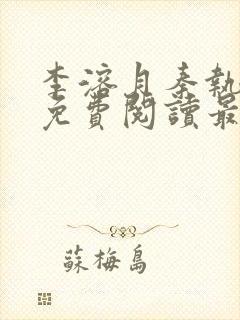 李溶月秦執
免費閱讀最
蘇梅島